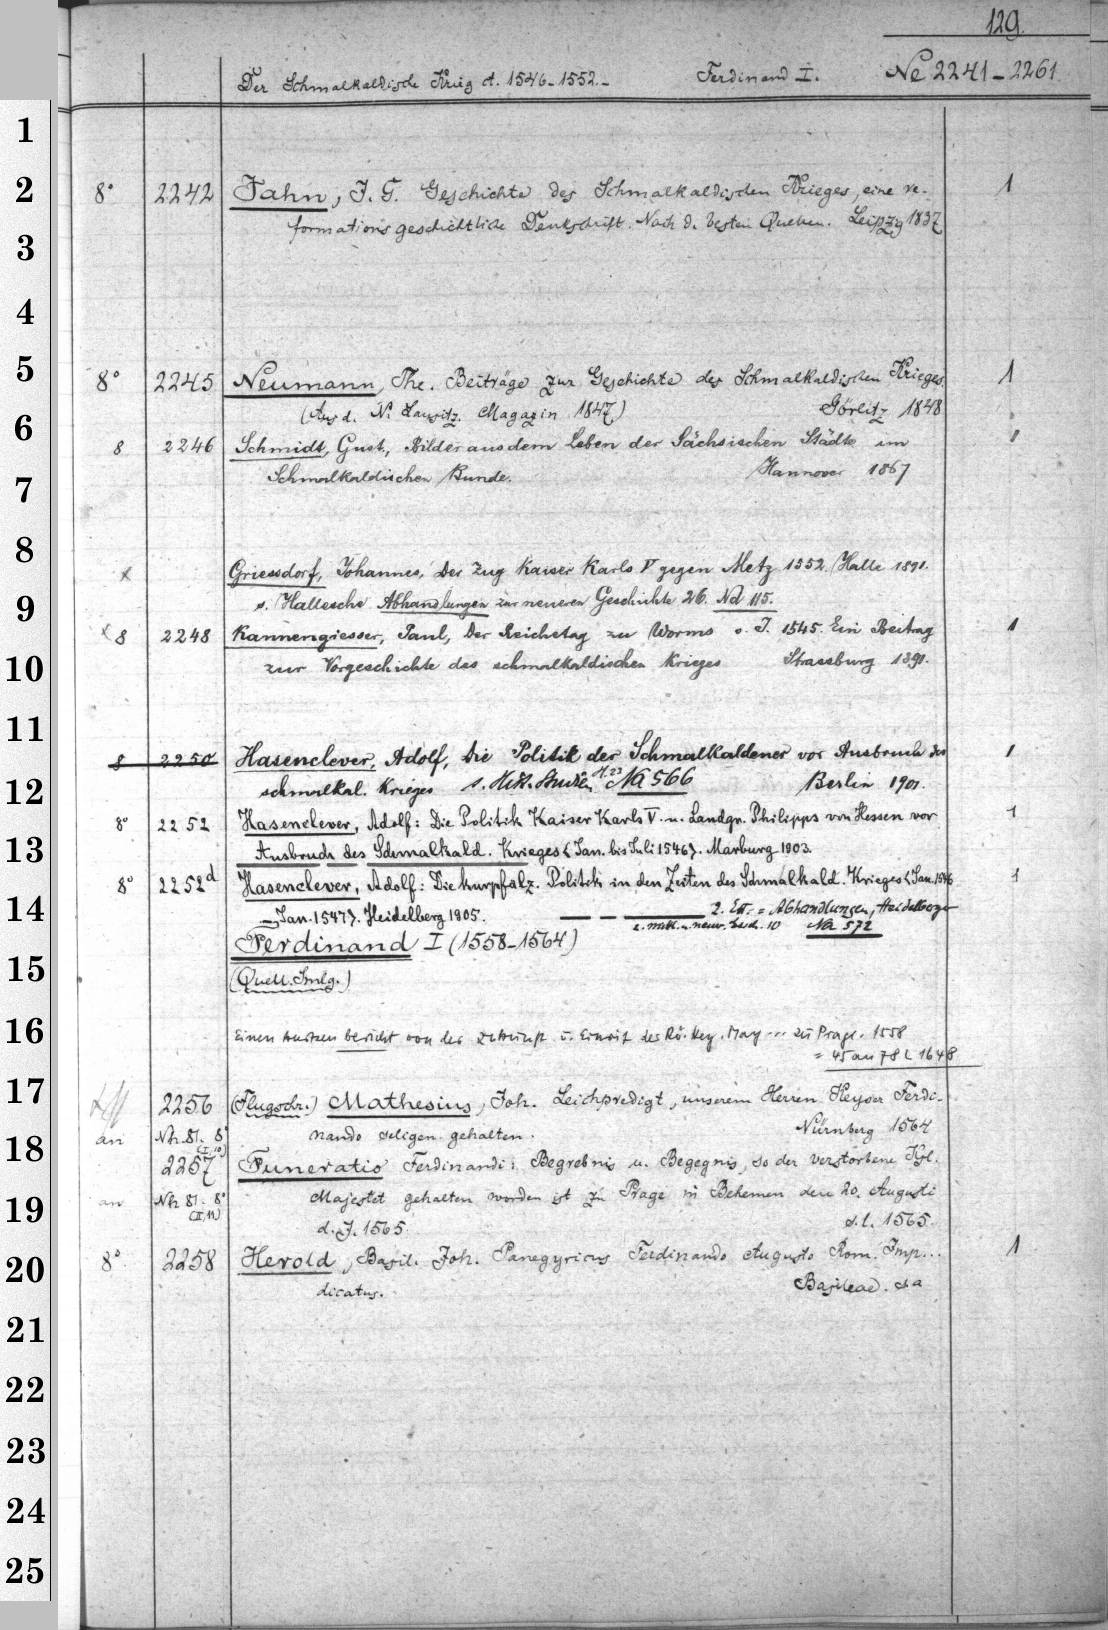 129.
Der Schmalkaldische Krieg d. 1546-1552.- Ferdinand I. Ne 2241-2261
1
2
3
4
5
6
7
8
9
10
11
12
13
14
15
16
17
18
19
20
21
22
23
24
25
8° 2242 Jahn, J. G. Geschichte des Schmalkaldischen Krieges, eine re- 1
formationsgeschichtliche Denkschrift. Nach d. besten Quellen. Leipzig 1837
8° 2245 Neumann, The. Beiträge zur Geschichte des Schmalkaldischen Krieges. 1
(Aus d. N. Lausitz. Magazin 1847) Görlitz 1848
8 2246 Schmidt, Gust., Bilder aus dem Leben der Sächsischen Städte im 1
Schmalkaldischen Bunde. Hannover 1867
x Griessdorf, Johannes, Der Zug Kaiser Karls V gegen Metz 1552. Halle 1891.
s. Hallesche Abhandlungen zur neueren Geschichte 26. Nd 115.
x 8 2248 Kannengiesser, Paul, Der Reichstag zu Worms v. J. 1545. Ein Beitrag 1
zur Vorgeschichte des schmalkaldischen Krieges Strassburg 1891.
8 2250 Hasenclever, Adolf, Die Politik der Schmalkaldener vor Ausbruch des 1
schmalkal. Krieges s. Hist. Studien H. 23 Na 566 Berlin 1901.
8° 2252 Hasenclever, Adolf: Die Politik Kaiser Karls V. u. Landgr. Philipps von Hessen vor 1
Ausbruch des Schmalkald. Krieges <Jan. bis Juli 1546>. Marburg 1903.
8° 2252d Hasenclever, Adolf: Die kurpfälz. Politik in den Zeiten des Schmalkald. Krieges <Jan. 1546 1
- Jan. 1547>. Heidelberg 1905. 2. Ex. = Abhandlungen, Heidelberger
z. mittl. u. neuer. Gesch. 10 Na 572
Ferdinand I (1558-1564)
(Quell. Smlg.)
Einen kurtzen bericht von der Ankunft u. Einrit des Rö. Key. May ... zu Prage. 1558
= 45 an 78 L 1648
2256 (Flugschr.) Mathesius, Joh. Leichpredigt, unserem Herren Keyser Ferdi-
an Nh. 81. 8° (I, 10) nando seligen gehalten. Nürnberg 1564
2257 Funeratio Ferdinandi: Begrebnis u. Begegnis, so der verstorbene Kgl.
an Nh 81. 8° (II, 11) Majestet gehalten worden ist zu Prage in Behemen den 20. Augusti
d. J. 1565. s. l. 1565.
8° 2258 Herold, Basil. Joh. Panegyricus Ferdinando Augusto Rom. Imp... 1
dicatus. Basileae. s a